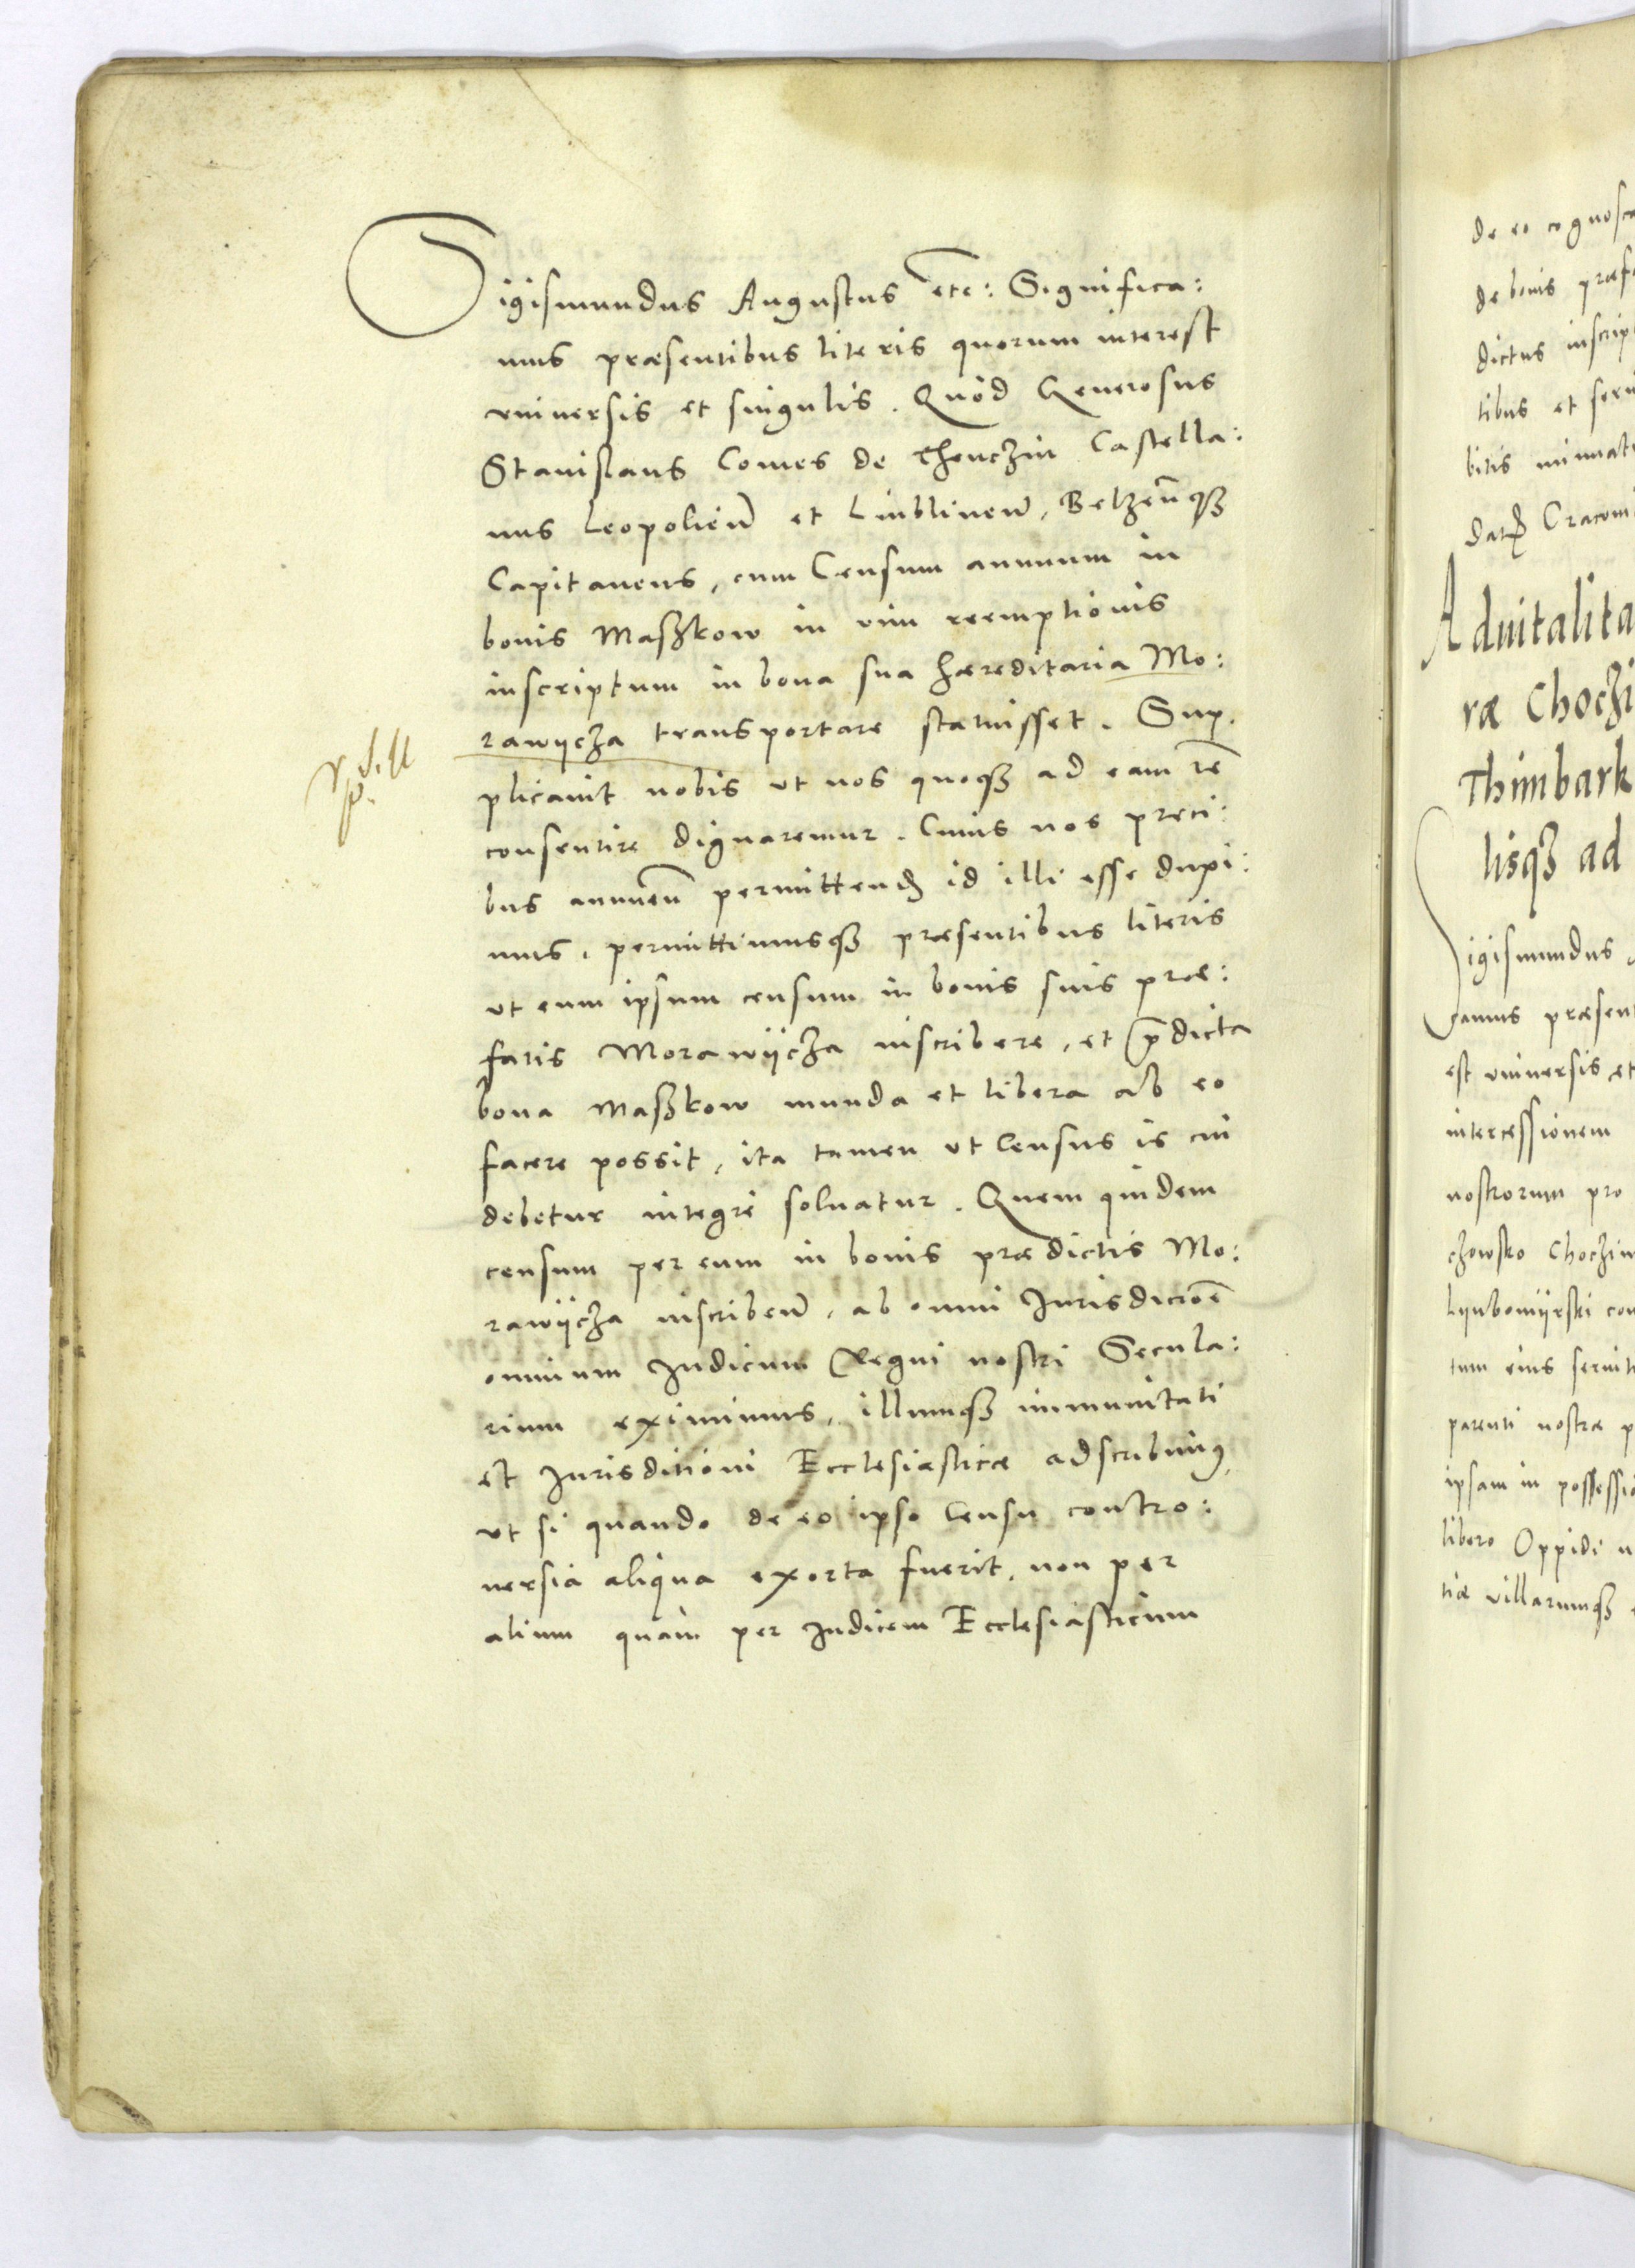 Sigismundus Augustus etc: Significa:
mus præsentibus literis quorum interest
vniuersis et singulis. Quòd Generosus
Stanislaus Comes de Thenczin Castella:
nus Leopolien̄ et Lublinen̄, Belzen̄qȝ
Capitaneus, cum Censum annuum in
bonis Maßkow in vim reemptionis
inscriptum in bona sua hæreditaria Mo:
rawijcza transportare statuisset. Sup.
plicauit nobis vt nos quoqȝ ad eam rē
consentire dignaremur. Cuius nos preci:
bus annuen̄ permittend id illi esse duxi:
mus, permittimusqȝ præsentibus literis
vt eum ipsum censum in bonis suis præ:
fatis Morawijcza inscribere, et p̄dicta
bona Maßkow munda et libera ab eo
facere possit, ita tamen vt Census is cui
debetur integrè soluatur. Quem quidem
censum per eum in bonis prædictis Mo:
rawijcza inscriben̄, ab omni Jurisdictiōe
omnium Judicum Regni nostri Secula:
rium eximimus, illumqȝ immunitati
et Jurisditioni Ecclesiasticæ adscribimꝰ,
vt si quando de eo ipso Censu contro:
uersia aliqua exorta fuerit, non per
alium quàm per Judicem Ecclesiasticum
de eo cognosca
de bonis præf
dictus inscrip
tibus et seru
bitis
Dat Cracoui
Aduitalita
ræ Choczi
Thimbark
lisqȝ ad
Sigismundus
camus præsent
est vniuersis et
intercessionem
nostrorum pro
czowsko Choczim
Lijubomijrski con
tum eius seruit
parenti nostræ p
ipsam in possessio
libero Oppidi
tiæ villarumqȝ